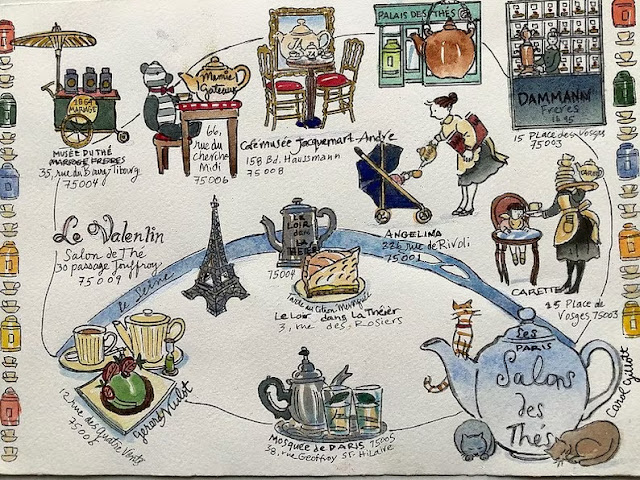 1854
MARIAGE
MUSÉE DU THÉ
MARIAGE FRERES
35, rue du Bourg-Tibourg
75004
Mamie
Gateaux
66,
rue du
Cherche
Midi
75006
Cafémusée Jacquemart-Andre
158 Bd. Haussmann
75008
PALAIS DES THÉS
DAMMANN
Freres
15 Place des Vosges
75003
ANGELINA
226 rue de Rivoli
75001
CARETTE
CARETTE
25 Place de
Vosges, 75003
Le Valentin
Salon de Thé
30 passage Jouffroy
75009
la Seine
LE LOIR
dans
LA
THEIERE
75004
Tarte au Citron Meringuée
Le Loir dans La Théier
3, rue des Rosiers
12 rue des Quatre Vents
75006
Gerard Mulot
Mosquee de PARIS 75005
38, rue Geoffroy St-Hilaire
Les
PARIS
Salons
des
Thés
Carol Gillott